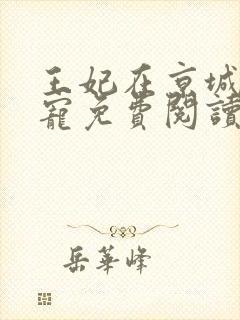 王妃在京城
寵免費閱讀
岳華峰